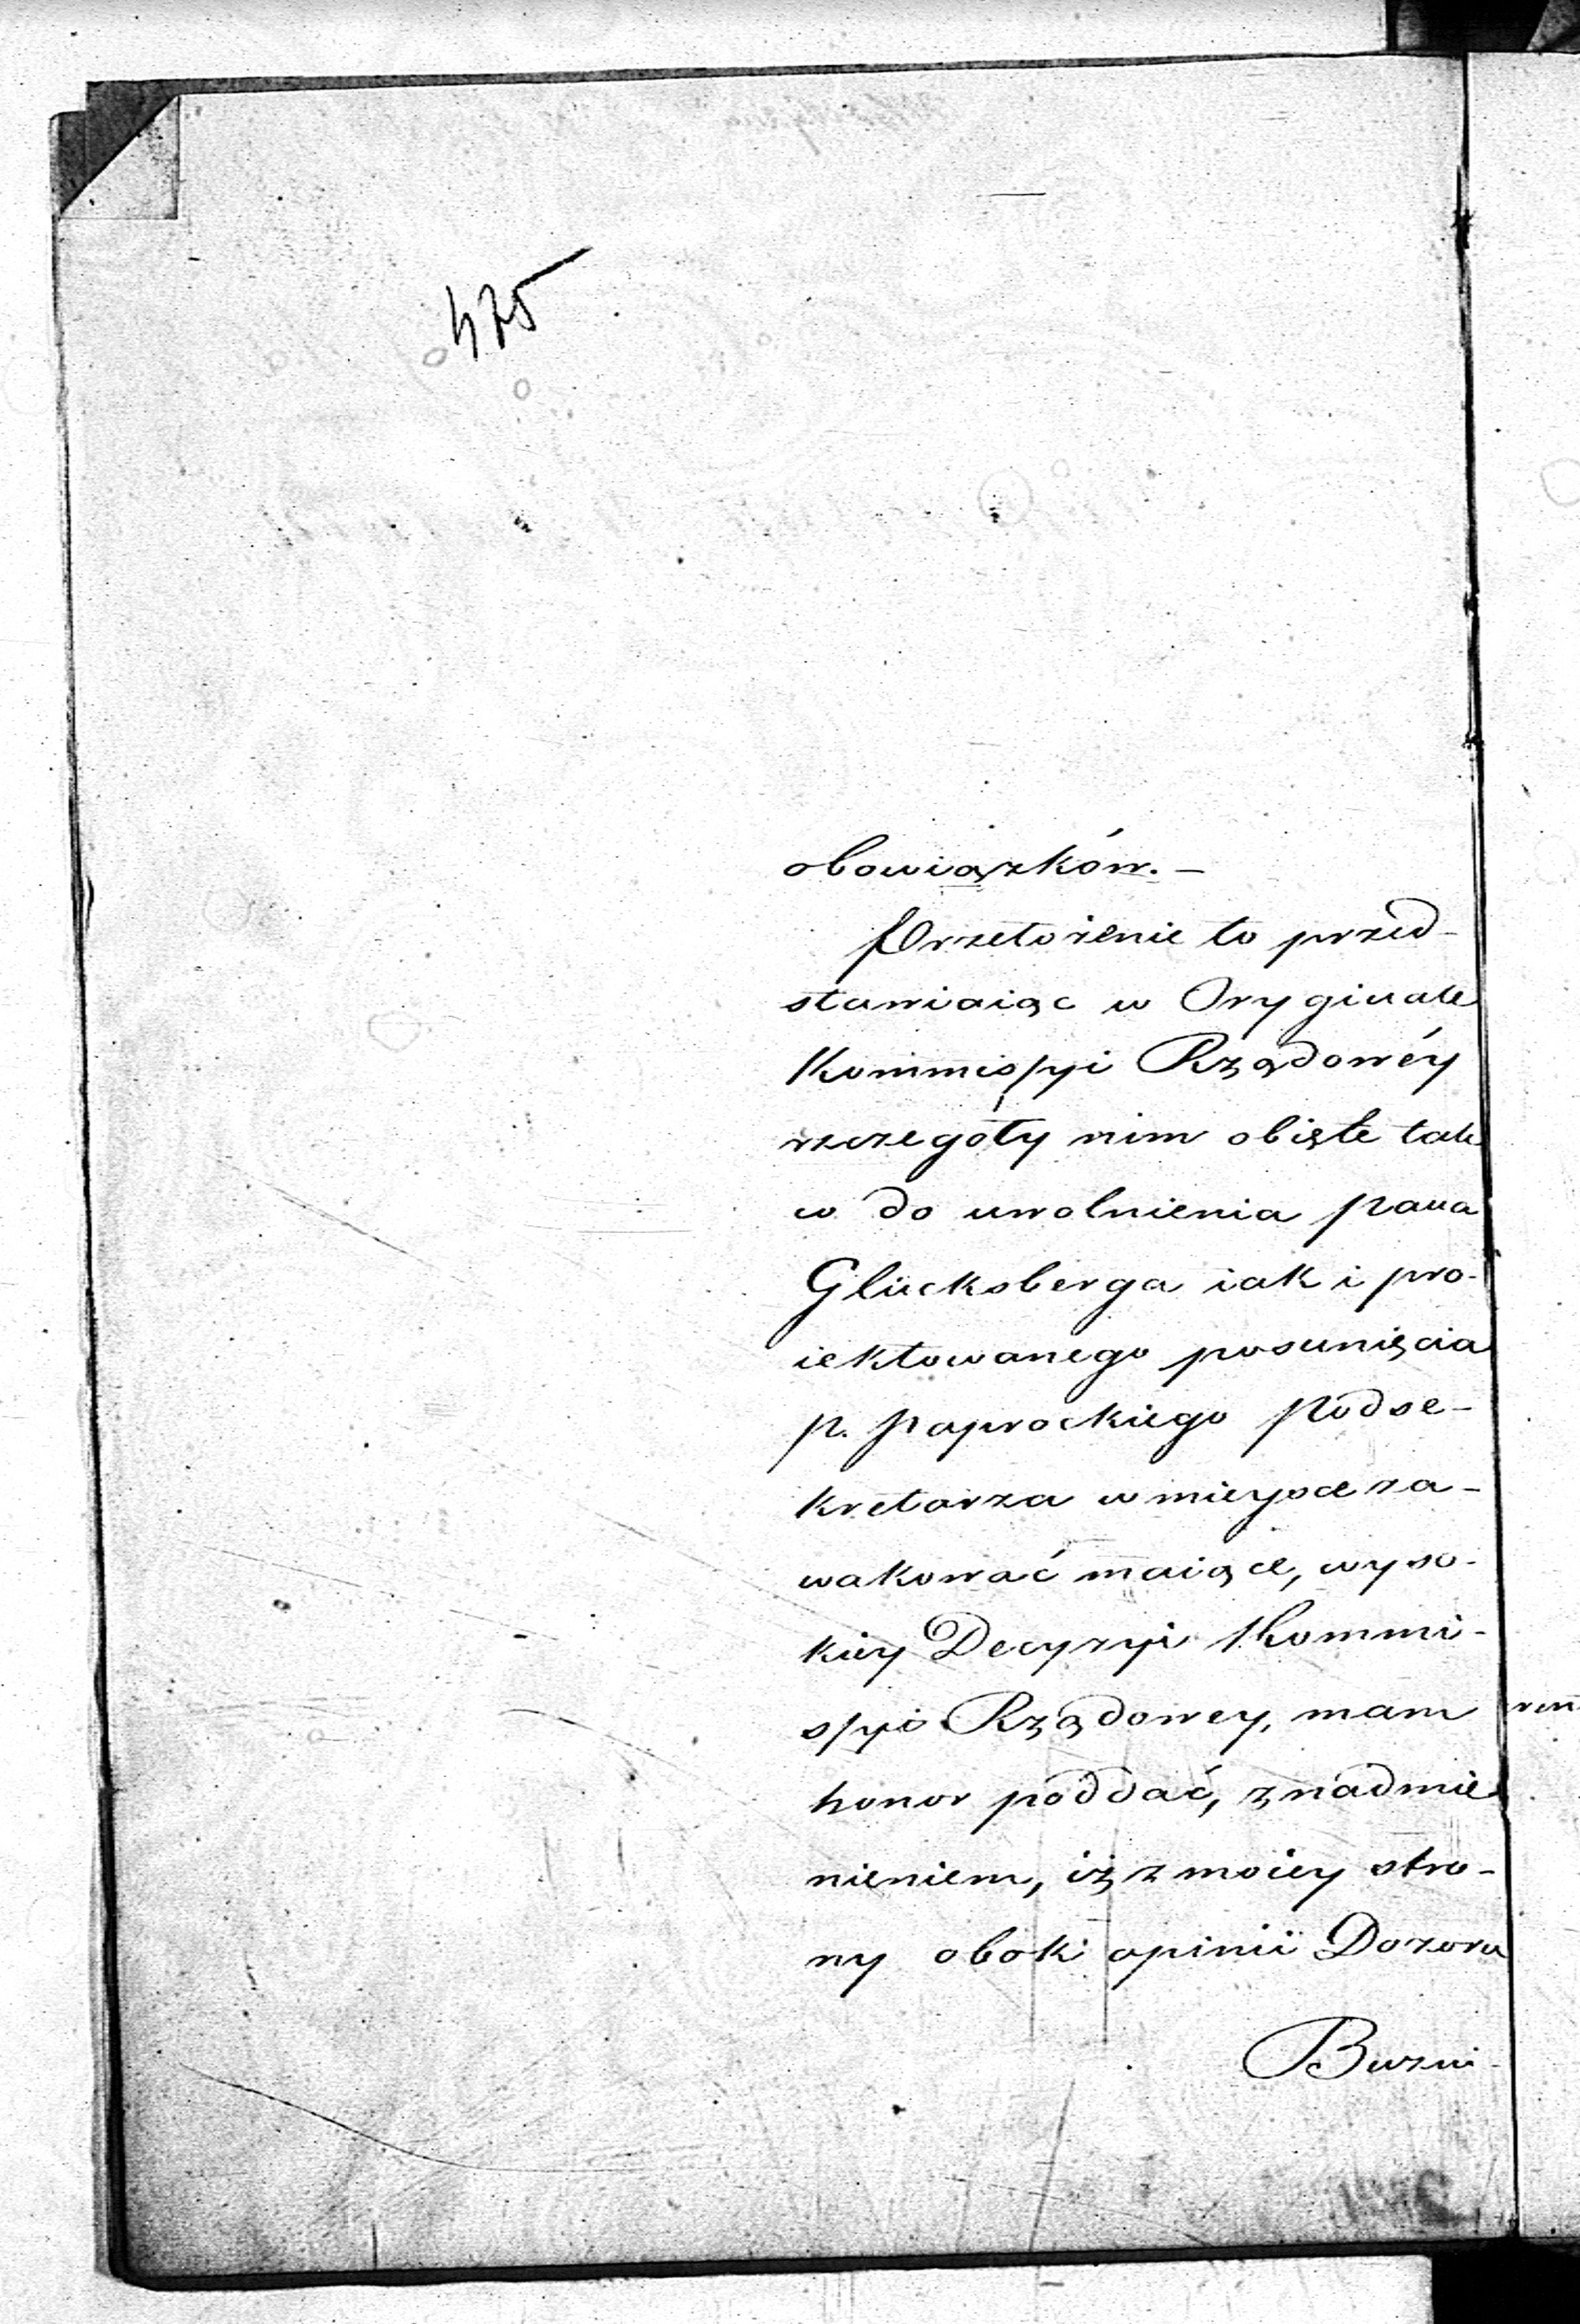 475
obowiązków. –
Przełożenie to przed-
stawiaiąc w Oryginale
Kommissyi Rządowéy
szczegóły nim obięte tak
co do uwolnienia Pana
Glücksberga iak i pro-
iektowanego posunięcia
P. Paprockiego Podse-
kretarza w mieysce za-
wakować maiące, wyso-
kiey Decyzyi Kommi-
ssyi Rządowey, mam
honor poddać, z nadmie
nieniem, iż z moiey stro-
ny obok opinii Dozoru
Buzni-